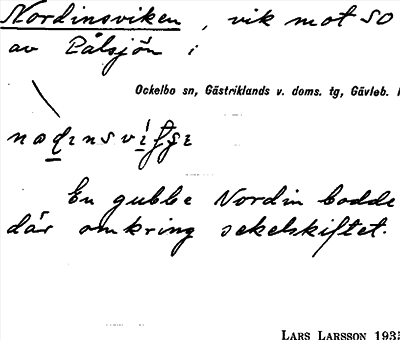 Nordinsviken, vik mot SO
av Pålsjön i
Ockelbo sn, Gästriklands v. doms. tg, Gävleb.
En gubbe Nordin bodde
där omkring sekelskiftet.
LARS LARSSON 193